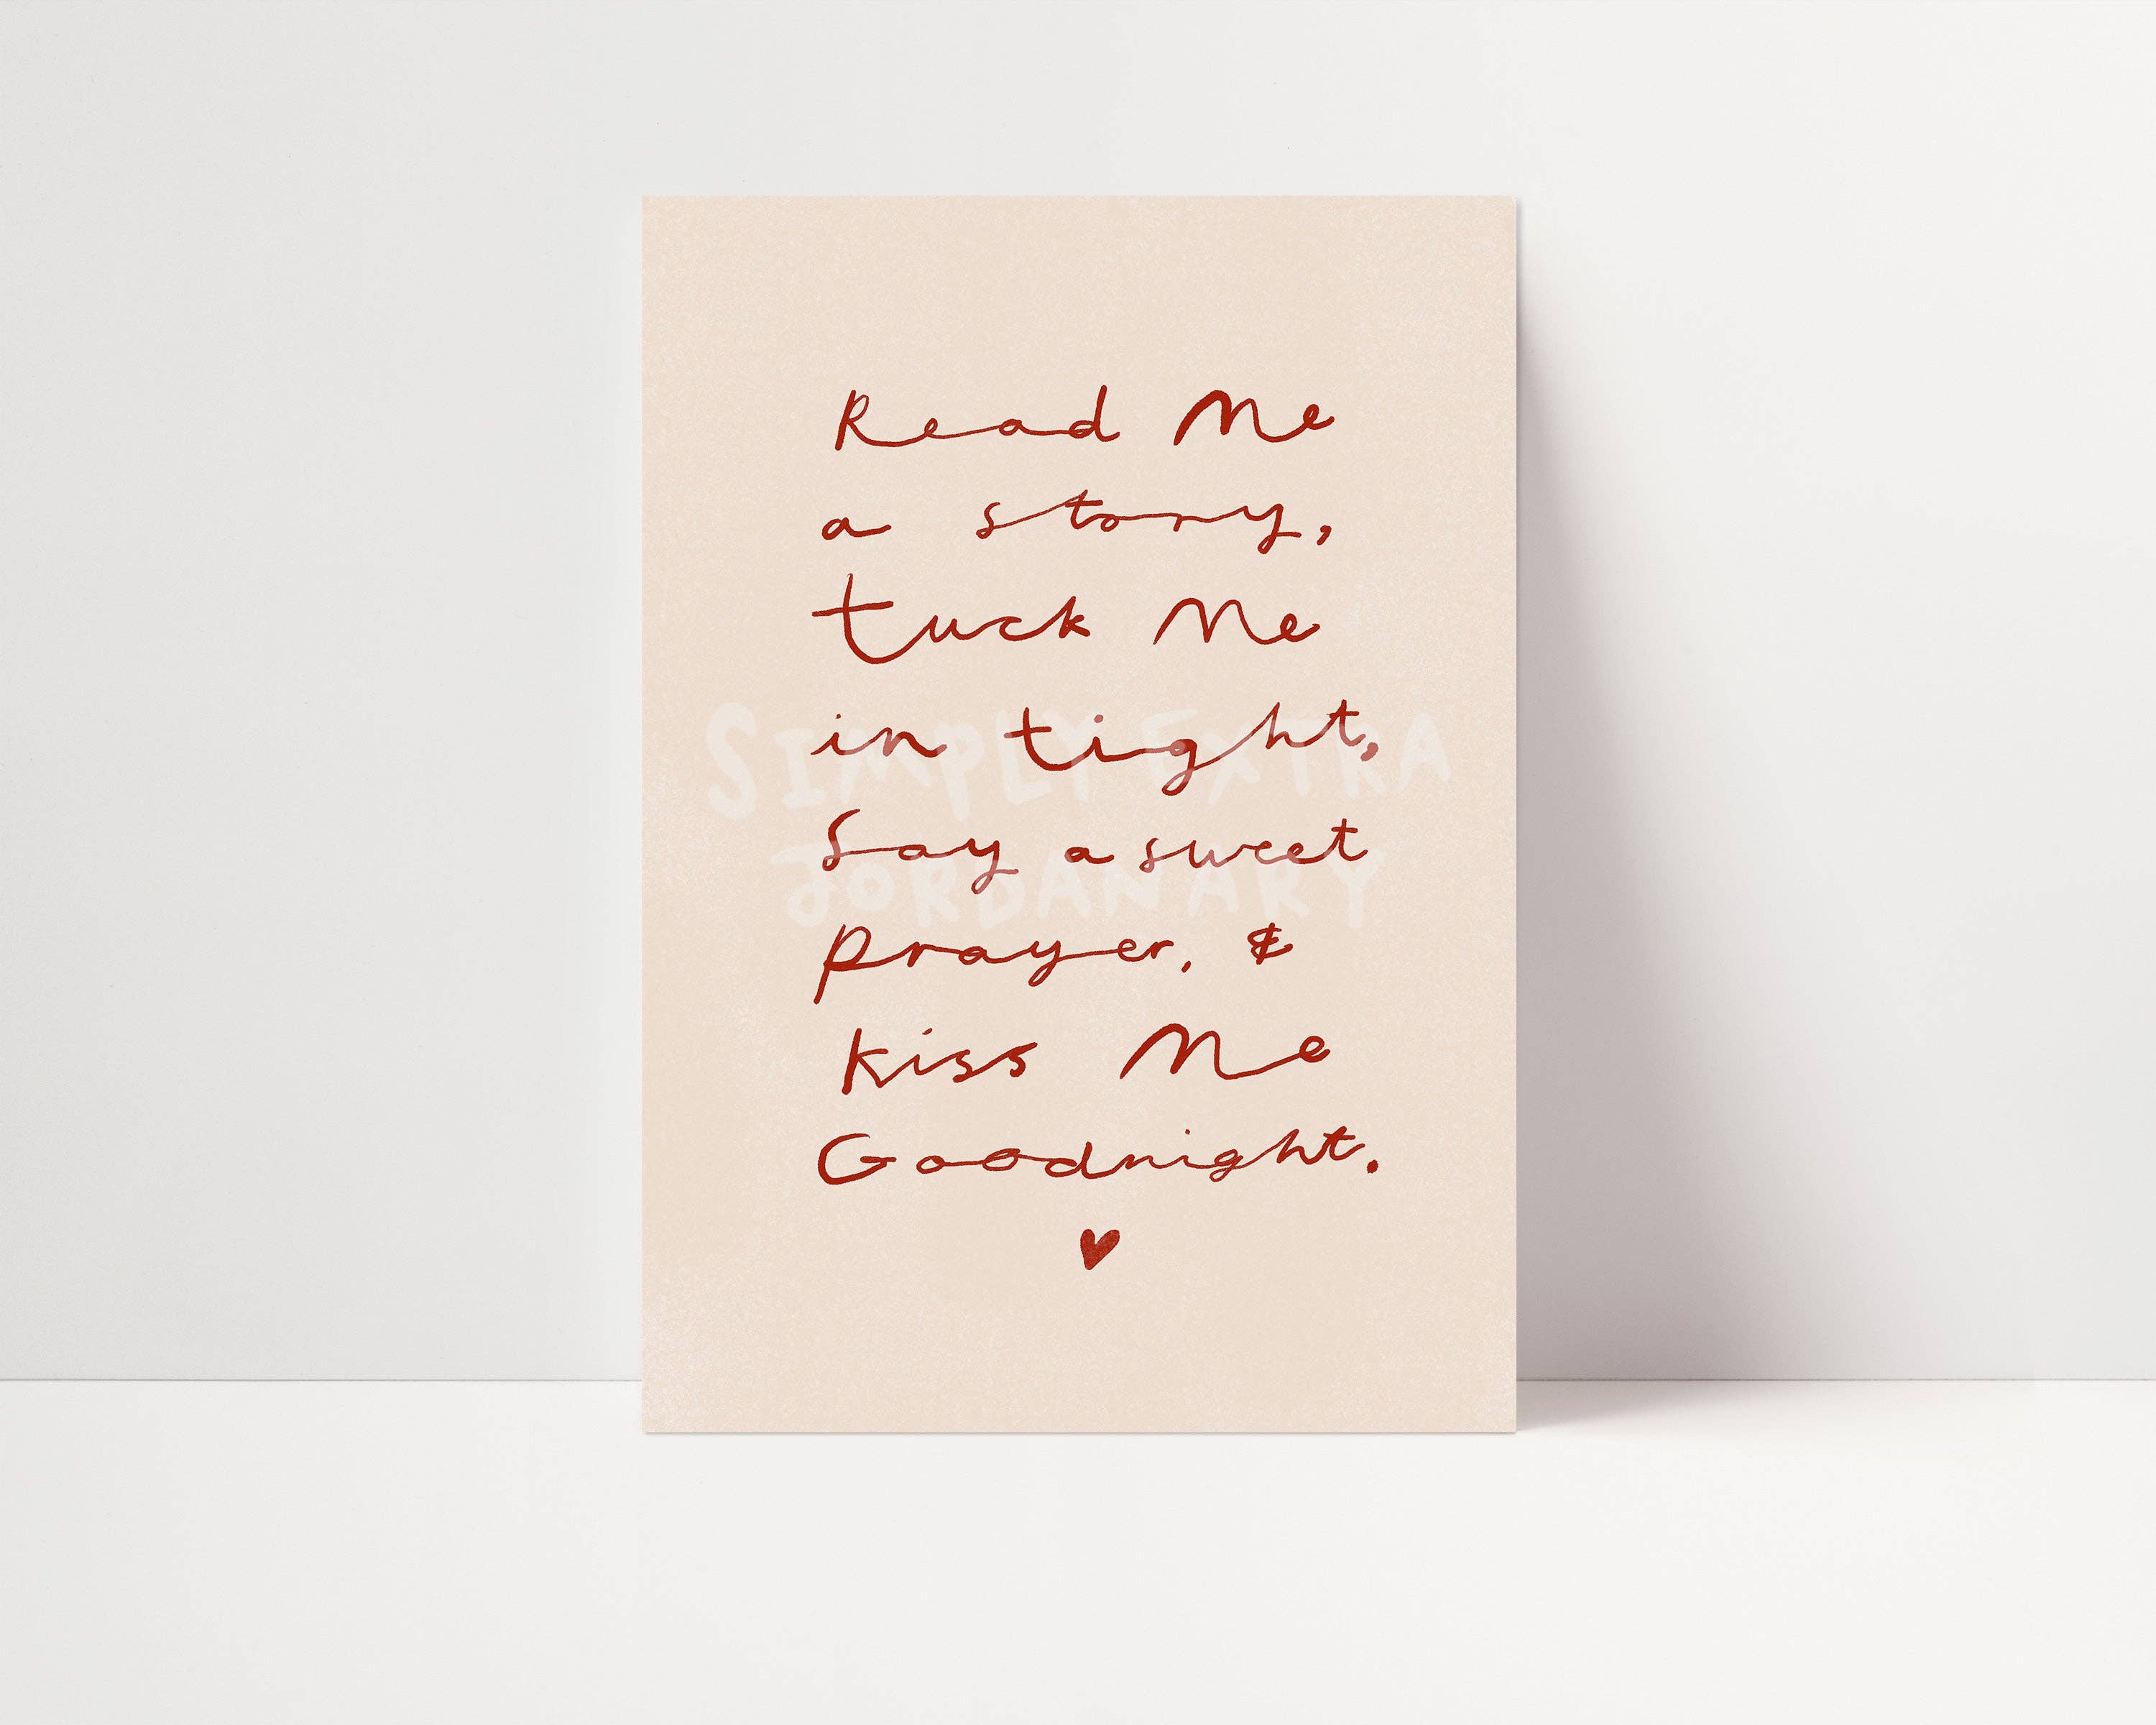 Read Me
a story,
tuck Me
in tight,
SIMPLY EXTRA
Say a sweet
JORDANARY
prayer, &
kiss Me
Goodnight.